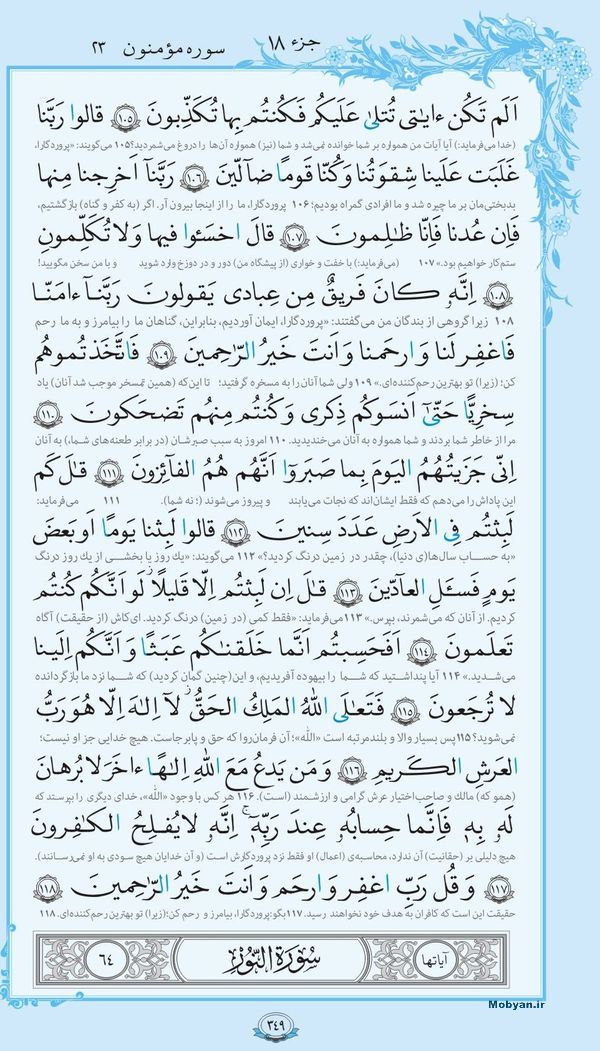 جزء ۱۸
سوره مؤمنون ۲۳
اَلَم تَكُن ءایٰتی تُتلیٰ عَلَیكُم فَكُنتُم بِها تُكَذِّبونَ ۱۰۵ قالوا رَبَّنا
(خدا می‌فرماید:) آیا آیات من همواره بر شما خوانده نمی‌شد و شما (نیز) همواره آن‌ها را دروغ می‌شمردید؟ ۱۰۵ می‌گویند: «پروردگارا،
غَلَبَت عَلَینا شِقوَتُنا وَ كُنّا قَومًا ضآلّینَ ۱۰۶ رَبَّنآ اَخرِجنا مِنها
بدبختی‌مان بر ما چیره شد و ما افرادی گمراه بودیم؛ ۱۰۶ پروردگارا، ما را از اینجا بیرون آر. اگر (به کفر و گناه) بازگشتیم،
فَاِن عُدنا فَاِنّا ظٰلِمونَ ۱۰۷ قالَ اخسَئوا فیها وَلا تُكَلِّمونِ
ستم‌کار خواهیم بود.» ۱۰۷ (می‌فرماید:) با خفت و خواری (از پیشگاه من) دور و در دوزخ وارد شوید و با من سخن مگویید!
۱۰۸ اِنَّهٗ كانَ فَریقٌ مِن عِبادی یَقولونَ رَبَّنآ ءامَنّا
۱۰۸ زیرا گروهی از بندگان من می‌گفتند: «پروردگارا، ایمان آوردیم، بنابراین، گناهان ما را بیامرز و به ما رحم
فَاغفِر لَنا وَ ارحَمنا وَ اَنتَ خَیرُ الرّٰحِمینَ ۱۰۹ فَاتَّخَذتُموهُم
کن؛ (زیرا) تو بهترین رحم‌کننده‌ای.» ۱۰۹ ولی شما آنان را به مسخره گرفتید؛ تا این‌که (همین تمسخر موجب شد آنان) یاد
سِخرِیًّا حَتّیٰٓ اَنسَوكُم ذِكری وَ كُنتُم مِنهُم تَضحَكونَ ۱۱۰
مرا از خاطر شما بردند و شما همواره به آنان می‌خندیدید. ۱۱۰ امروز به سبب صبرشان (در برابر طعنه‌های شما)، به آنان
اِنّی جَزَیتُهُمُ الیَومَ بِما صَبَرَوا اَنَّهُم هُمُ الفآئِزونَ ۱۱۱ قٰلَ كَم
این پاداش را می‌دهم که فقط ایشان‌اند که نجات می‌یابند و پیروز می‌شوند (؛ نه شما). ۱۱۱ می‌فرماید:
لَبِثتُم فِی الاَرضِ عَدَدَ سِنینَ ۱۱۲ قالوا لَبِثنا یَومًا اَو بَعضَ
«به حساب سال‌ها(ی دنیا)، چقدر در زمین درنگ کردید؟» ۱۱۲ می‌گویند: «یك روز یا بخشی از یك روز درنگ
یَومٍ فَسـَٔلِ العآدّینَ ۱۱۳ قٰلَ اِن لَبِثتُم اِلّا قَلیلًا لَو اَنَّكُم كُنتُم
کردیم. از آنان که می‌شمرند، بپرس.» ۱۱۳ می‌فرماید: «فقط کمی (در زمین) درنگ کردید. ای‌کاش (از حقیقت) آگاه
تَعلَمونَ ۱۱۴ اَفَحَسِبتُم اَنَّما خَلَقنٰكُم عَبَثًا وَ اَنَّكُم اِلَینا
می‌شدید.» ۱۱۴ آیا پنداشتید که شما را بیهوده آفریدیم، و این(چنین گمان کردید) که شما نزد ما بازگردانده
لا تُرجَعونَ ۱۱۵ فَتَعٰلَی اللّٰهُ المَلِكُ الحَقُّ لآ اِلٰهَ اِلّا هُوَ رَبُّ
نمی‌شوید؟ ۱۱۵ پس بسیار والا و بلندمرتبه است «اللّٰه»؛ آن فرمان‌روا که حق و پابرجاست. هیچ خدایی جز او نیست؛
العَرشِ الكَریمِ ۱۱۶ وَ مَن یَدعُ مَعَ اللّٰهِ اِلٰهًا ءاخَرَ لا بُرهانَ
(همو که) مالك و صاحب‌اختیار عرش گرامی و ارزشمند (است). ۱۱۶ هر کس با وجود «اللّٰه»، خدای دیگری را بپرستد که
لَهٗ بِهٖ فَاِنَّما حِسابُهٗ عِندَ رَبِّهٖٓ اِنَّهٗ لا یُفلِحُ الكٰفِرونَ
هیچ دلیلی بر (حقانیت) آن ندارد، محاسبه‌ی (اعمال) او فقط نزد پروردگارش است (و آن خدایان هیچ سودی به او نمی‌رسانند).
۱۱۷ وَ قُل رَبِّ اغفِر وَ ارحَم وَ اَنتَ خَیرُ الرّٰحِمینَ ۱۱۸
حقیقت این است که کافران به هدف خود نخواهند رسید. ۱۱۷ بگو: پروردگارا، بیامرز و رحم کن؛ (زیرا) تو بهترین رحم‌کننده‌ای. ۱۱۸
آیاتها سُورَةُ النّور ۶۴
Mobyan.ir
۳۴۹